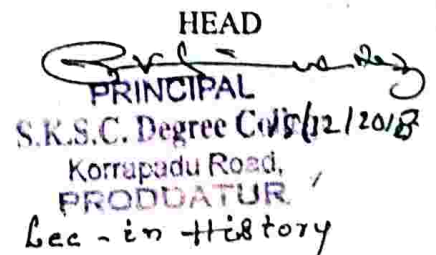 HEAD
PRINCIPAL
S.K.S.C. Degree Col 15/12/2018
Korrapadu Road,
PRODDATUR
Lec - in History